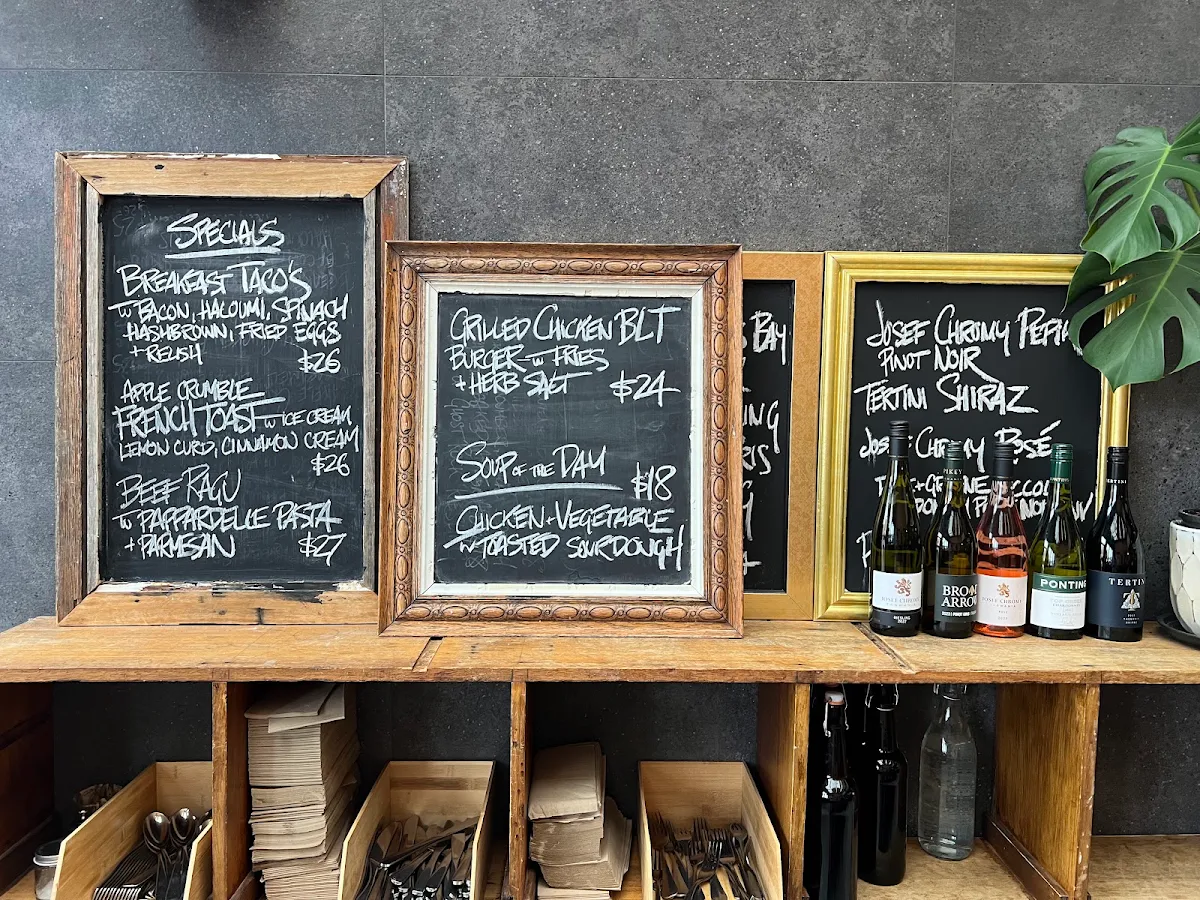 SPECIALS
BREAKFAST TACO'S
w BACON, HALOUMI, SPINACH
HASHBROWN, FRIED EGGS
+ RELISH $26
APPLE CRUMBLE
FRENCH TOAST w ICE CREAM
LEMON CURD, CINNAMON CREAM
$26
BEEF RAGU
w PAPPARDELLE PASTA
+ PARMESAN $27
GRILLED CHICKEN BLT
BURGER w FRIES
+ HERB SALT $24
SOUP OF THE DAY $18
CHICKEN + VEGETABLE
w TOASTED SOURDOUGH
BAY
ING
RIS
JOSEF CHROMY PEPIK
PINOT NOIR
TERTINI SHIRAZ
JOSEF CHROMY ROSÉ
JOSEF CHROMY
RIESLING
BROWN
ARROW
JOSEF CHROMY
PONTING
TERTINI